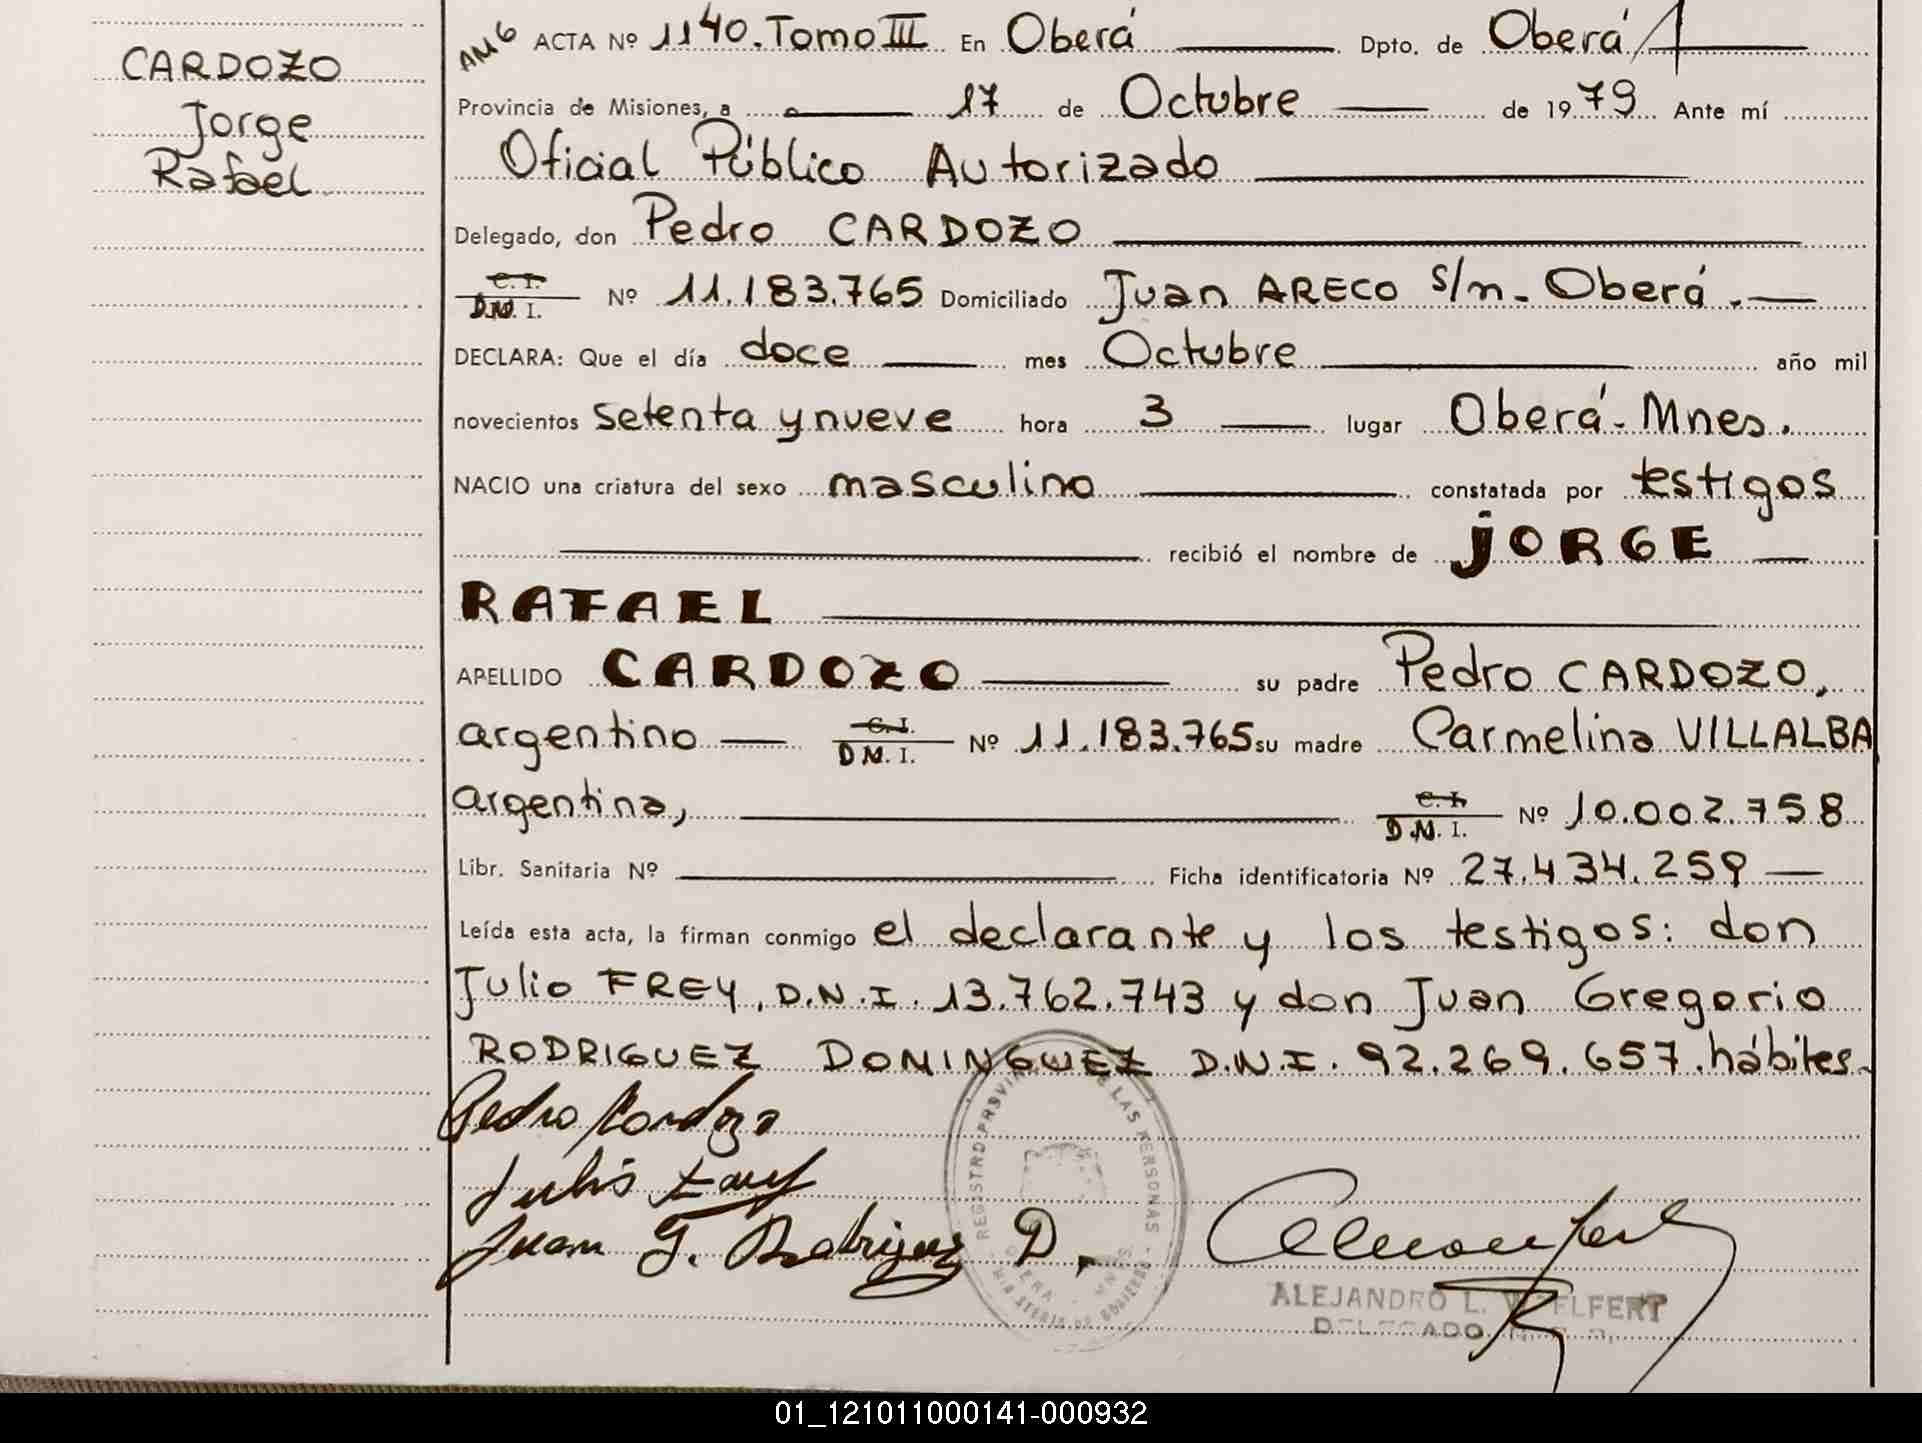 CARDOZO
Jorge
Rafael
AMG ACTA Nº 1140. Tomo III En Oberá Dpto. de Oberá
Provincia de Misiones, a 17 de Octubre de 1979 Ante mí
Oficial Público Autorizado
Delegado, don Pedro CARDOZO
C. I.
D.N.I. Nº 11.183.765 Domiciliado Juan ARECO s/n - Oberá.
DECLARA: Que el día doce mes Octubre año mil
novecientos setenta y nueve hora 3 lugar Oberá - Mnes.
NACIO una criatura del sexo masculino constatada por testigos
recibió el nombre de JORGE
RAFAEL
APELLIDO CARDOZO su padre Pedro CARDOZO,
argentino C.I.
D.N.I. Nº 11.183.765 su madre Carmelina VILLALBA
argentina, C.I.
D.N.I. Nº 10.002.758
Libr. Sanitaria Nº Ficha identificatoria Nº 27.434.259
Leída esta acta, la firman conmigo el declarante y los testigos: don
Julio FREY, D.N.I. 13.762.743 y don Juan Gregorio
RODRIGUEZ DOMINGUEZ D.N.I. 92.269.657. hábiles.
Pedro Cardozo
Julio Frey
Juan G. Rodriguez D.
REGISTRO PROVINCIAL DE LAS PERSONAS
MINISTERIO DE GOBIERNO
OBERA - MNES
ALEJANDRO L. WELFERT
DELEGADO
01_121011000141-000932